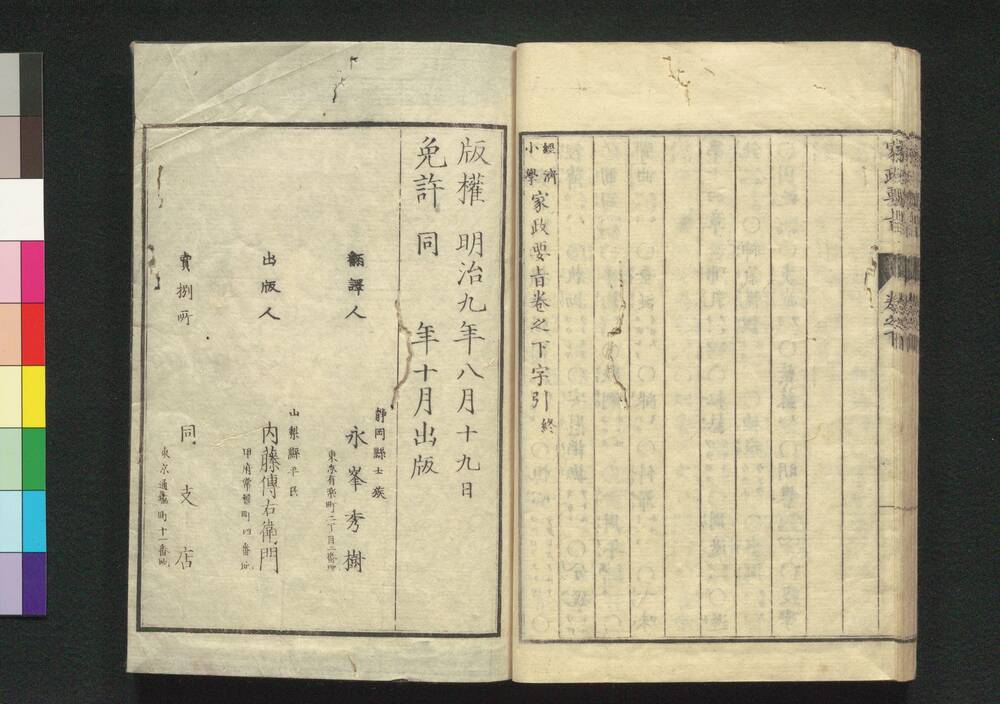 家政要旨
卷之下
經濟
小學
家政要旨卷之下字引終
版權
免許
明治九年八月十九日
同 年十月出版
靜岡縣士族
飜譯人 永峯秀樹
東京有樂町二丁目二番地
山梨縣平民
出版人 內藤傳右衞門
甲府常盤町四番地
賣捌所 同支店
東京通塩町十一番地